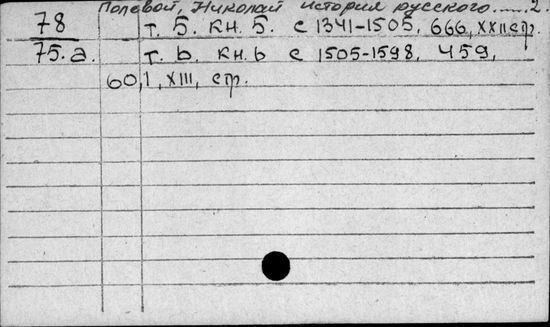 Полевой, Николай история русского......2.
78 т. 5. кн. 5. с 1341-1505, 666, XXII стр.
75.а. т. 6. кн. 6 с 1505-1598, 459,
60, 1, XIII, стр.